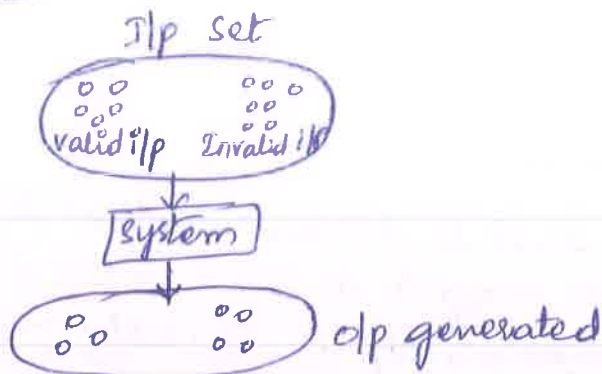 I/p Set
valid i/p Invalid i/p
System
o/p generated